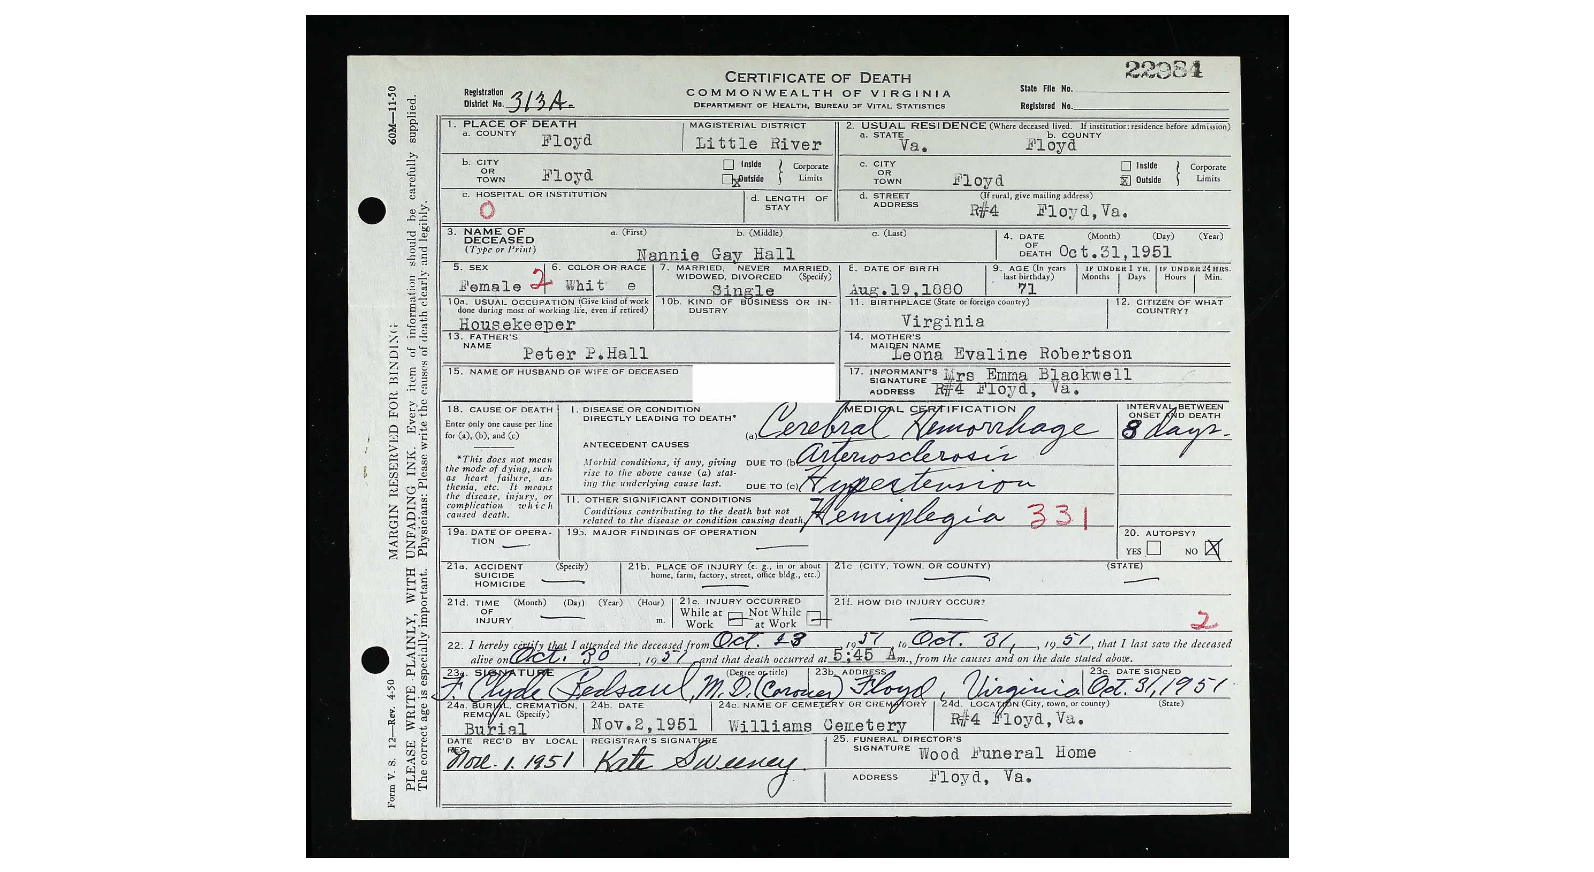 22984
CERTIFICATE OF DEATH
COMMONWEALTH OF VIRGINIA
DEPARTMENT OF HEALTH, BUREAU OF VITAL STATISTICS
Registration District No. 313A.
State File No.
Registered No.
60M—11-50
MARGIN RESERVED FOR BINDING
Form V. S. 12—Rev. 4-50
PLEASE WRITE PLAINLY, WITH UNFADING INK. Every item of information should be carefully supplied.
The correct age is especially important. Physicians: Please write the causes of death clearly and legibly.
1. PLACE OF DEATH
a. COUNTY Floyd
MAGISTERIAL DISTRICT Little River
2. USUAL RESIDENCE (Where deceased lived. If institution: residence before admission)
a. STATE Va. b. COUNTY Floyd
b. CITY OR TOWN Floyd
Inside Outside Corporate Limits
c. CITY OR TOWN Floyd
Inside Outside Corporate Limits
c. HOSPITAL OR INSTITUTION 0
d. LENGTH OF STAY
d. STREET ADDRESS (If rural, give mailing address)
R#4 Floyd,Va.
3. NAME OF DECEASED (Type or Print)
a. (First) b. (Middle) c. (Last)
Nannie Gay Hall
4. DATE OF DEATH (Month) (Day) (Year)
Oct.31,1951
5. SEX Female 2
6. COLOR OR RACE Whit e
7. MARRIED, NEVER MARRIED, WIDOWED, DIVORCED (Specify)
Single
8. DATE OF BIRTH
Aug.19,1880
9. AGE (In years last birthday) 71
IF UNDER 1 YR. Months Days
IF UNDER 24 HRS. Hours Min.
10a. USUAL OCCUPATION (Give kind of work done during most of working life, even if retired)
Housekeeper
10b. KIND OF BUSINESS OR INDUSTRY
11. BIRTHPLACE (State or foreign country)
Virginia
12. CITIZEN OF WHAT COUNTRY?
13. FATHER'S NAME
Peter P.Hall
14. MOTHER'S MAIDEN NAME
Leona Evaline Robertson
15. NAME OF HUSBAND OR WIFE OF DECEASED
17. INFORMANT'S SIGNATURE Mrs Emma Blackwell
ADDRESS R#4 Floyd, Va.
18. CAUSE OF DEATH
Enter only one cause per line for (a), (b), and (c)
*This does not mean the mode of dying, such as heart failure, asthenia, etc. It means the disease, injury, or complication which caused death.
MEDICAL CERTIFICATION
INTERVAL BETWEEN ONSET AND DEATH
I. DISEASE OR CONDITION DIRECTLY LEADING TO DEATH*
(a) Cerebral Hemorrhage 8 days.
ANTECEDENT CAUSES
Morbid conditions, if any, giving rise to the above cause (a) stating the underlying cause last.
DUE TO (b) Arteriosclerosis
DUE TO (c) Hypertension
II. OTHER SIGNIFICANT CONDITIONS
Conditions contributing to the death but not related to the disease or condition causing death.
Hemiplegia 331
19a. DATE OF OPERATION
19b. MAJOR FINDINGS OF OPERATION
20. AUTOPSY?
YES NO
21a. ACCIDENT SUICIDE HOMICIDE (Specify)
21b. PLACE OF INJURY (e. g., in or about home, farm, factory, street, office bldg., etc.)
21c (CITY, TOWN, OR COUNTY) (STATE)
21d. TIME OF INJURY (Month) (Day) (Year) (Hour) m.
21e. INJURY OCCURRED
While at Work Not While at Work
21f. HOW DID INJURY OCCUR?
2
22. I hereby certify that I attended the deceased from Oct. 23, 1951, to Oct. 31, 1951, that I last saw the deceased
alive on Oct. 30, 1951, and that death occurred at 5:45 A m., from the causes and on the date stated above.
23a. SIGNATURE (Degree or title) 23b. ADDRESS 23c. DATE SIGNED
F. Clyde Bedsaul, M.D. (Coroner) Floyd, Virginia Oct. 31, 1951
24a. BURIAL, CREMATION, REMOVAL (Specify)
Burial
24b. DATE
Nov.2,1951
24c. NAME OF CEMETERY OR CREMATORY
Williams Cemetery
24d. LOCATION (City, town, or county) (State)
R#4 Floyd,Va.
DATE REC'D BY LOCAL REG.
Nov. 1. 1951
REGISTRAR'S SIGNATURE
Kate Sweeney
25. FUNERAL DIRECTOR'S SIGNATURE Wood Funeral Home
ADDRESS Floyd, Va.